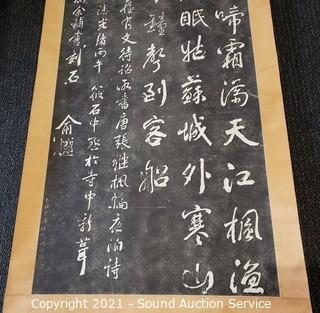 啼霜滿天江楓漁
眠姑蘇城外寒山
鐘聲到客船
舊有文待詔所書唐張繼楓橋夜泊詩
漶光緒丙午筱石中丞於寺中新葺
余補書刻石
俞樾
Copyright 2021 - Sound Auction Service